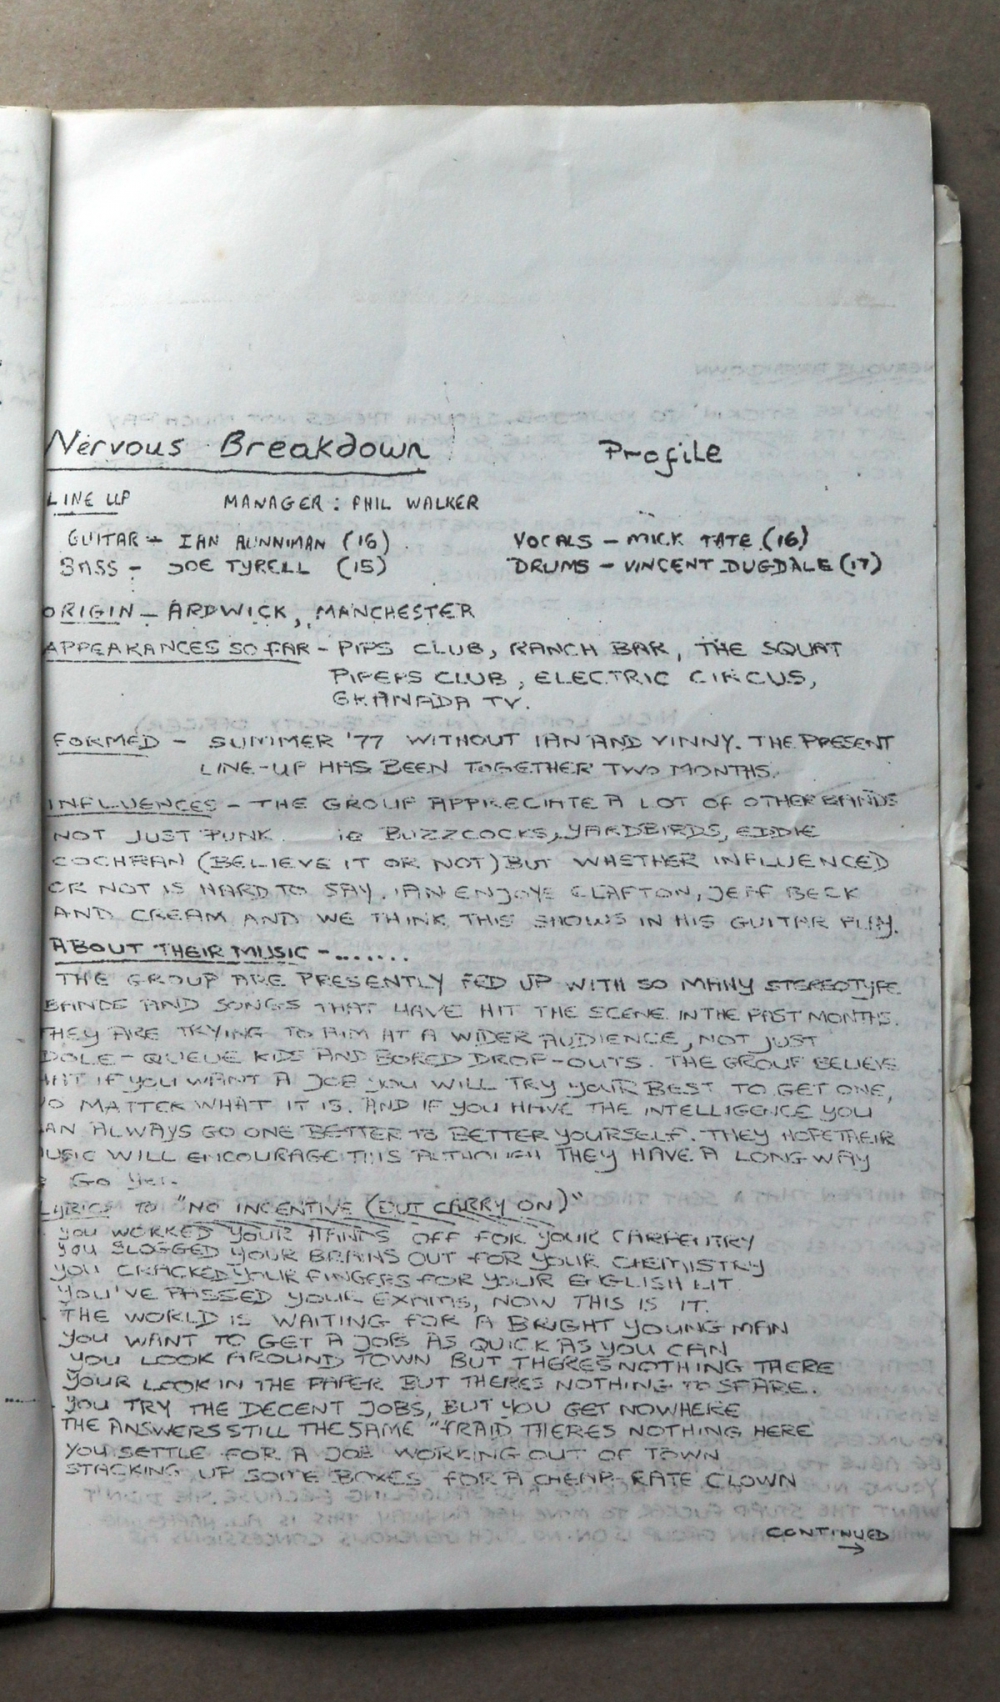 Nervous Breakdown Profile
LINE UP MANAGER : PHIL WALKER
GUITAR - IAN RUNNIMAN (16) VOCALS - MICK TATE (16)
BASS - JOE TYRELL (15) DRUMS - VINCENT DUGDALE (17)
ORIGIN - ARDWICK, MANCHESTER
APPEARANCES SO FAR - PIPS CLUB, RANCH BAR, THE SQUAT
PIPERS CLUB, ELECTRIC CIRCUS,
GRANADA TV.
FORMED - SUMMER '77 WITHOUT IAN AND VINNY. THE PRESENT
LINE-UP HAS BEEN TOGETHER TWO MONTHS.
INFLUENCES - THE GROUP APPRECIATE A LOT OF OTHER BANDS
NOT JUST PUNK ie BUZZCOCKS, YARDBIRDS, EDDIE
COCHRAN (BELIEVE IT OR NOT) BUT WHETHER INFLUENCED
OR NOT IS HARD TO SAY. IAN ENJOYS CLAPTON, JEFF BECK
AND CREAM AND WE THINK THIS SHOWS IN HIS GUITAR PLAY.
ABOUT THEIR MUSIC - .......
THE GROUP ARE PRESENTLY FED UP WITH SO MANY STEREOTYPE
BANDS AND SONGS THAT HAVE HIT THE SCENE IN THE PAST MONTHS.
THEY ARE TRYING TO AIM AT A WIDER AUDIENCE, NOT JUST
DOLE-QUEUE KIDS AND BORED DROP-OUTS. THE GROUP BELIEVE
HAT IF YOU WANT A JOB YOU WILL TRY YOUR BEST TO GET ONE,
O MATTER WHAT IT IS. AND IF YOU HAVE THE INTELLIGENCE YOU
AN ALWAYS GO ONE BETTER TO BETTER YOURSELF. THEY HOPE THEIR
USIC WILL ENCOURAGE THIS ALTHOUGH THEY HAVE A LONG WAY
Go Yet.
LYRICS TO "NO INCENTIVE (BUT CARRY ON)"
YOU WORKED YOUR HANDS OFF FOR YOUR CARPENTRY
YOU SLOGGED YOUR BRAINS OUT FOR YOUR CHEMISTRY
YOU CRACKED YOUR FINGERS FOR YOUR ENGLISH LIT
YOU'VE PASSED YOUR EXAMS, NOW THIS IS IT.
THE WORLD IS WAITING FOR A BRIGHT YOUNG MAN
YOU WANT TO GET A JOB AS QUICK AS YOU CAN
YOU LOOK AROUND TOWN BUT THERES NOTHING THERE
YOUR LOOK IN THE PAPER BUT THERES NOTHING TO SPARE.
YOU TRY THE DECENT JOBS, BUT YOU GET NOWHERE
THE ANSWERS STILL THE SAME "'FRAID THERES NOTHING HERE
YOU SETTLE FOR A JOB WORKING OUT OF TOWN
STACKING UP SOME BOXES FOR A CHEAP-RATE CLOWN
CONTINUED →